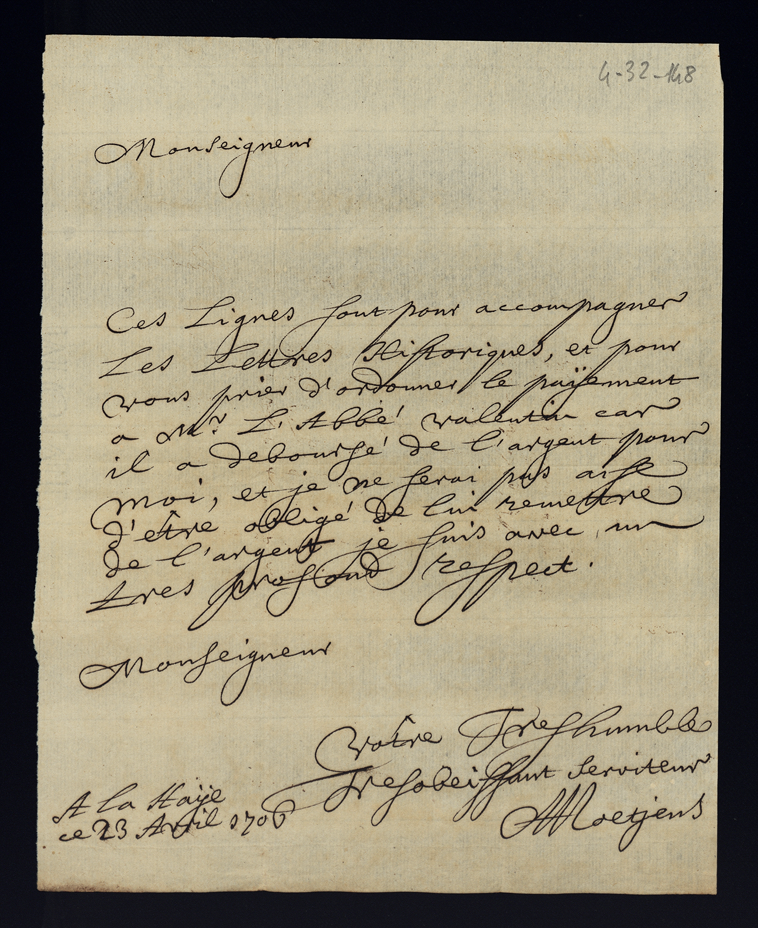 4-32-148
Monseigneur
Ces Lignes sont pour accompagner
Les Lettres Historiques, et pour
vous prier d'ordonner le païement
a Mr. L'Abbé valentin car
il a deboursé de l'argent pour
moi, et je ne serai pas aise
d'être obligé de lui remettre
de l'argent je suis avec un
tres profond respect.
Monseigneur
Votre Treshumble
Tresobeissant Serviteur
AMoetjens
A la Haÿe
ce 23 Avril 1706